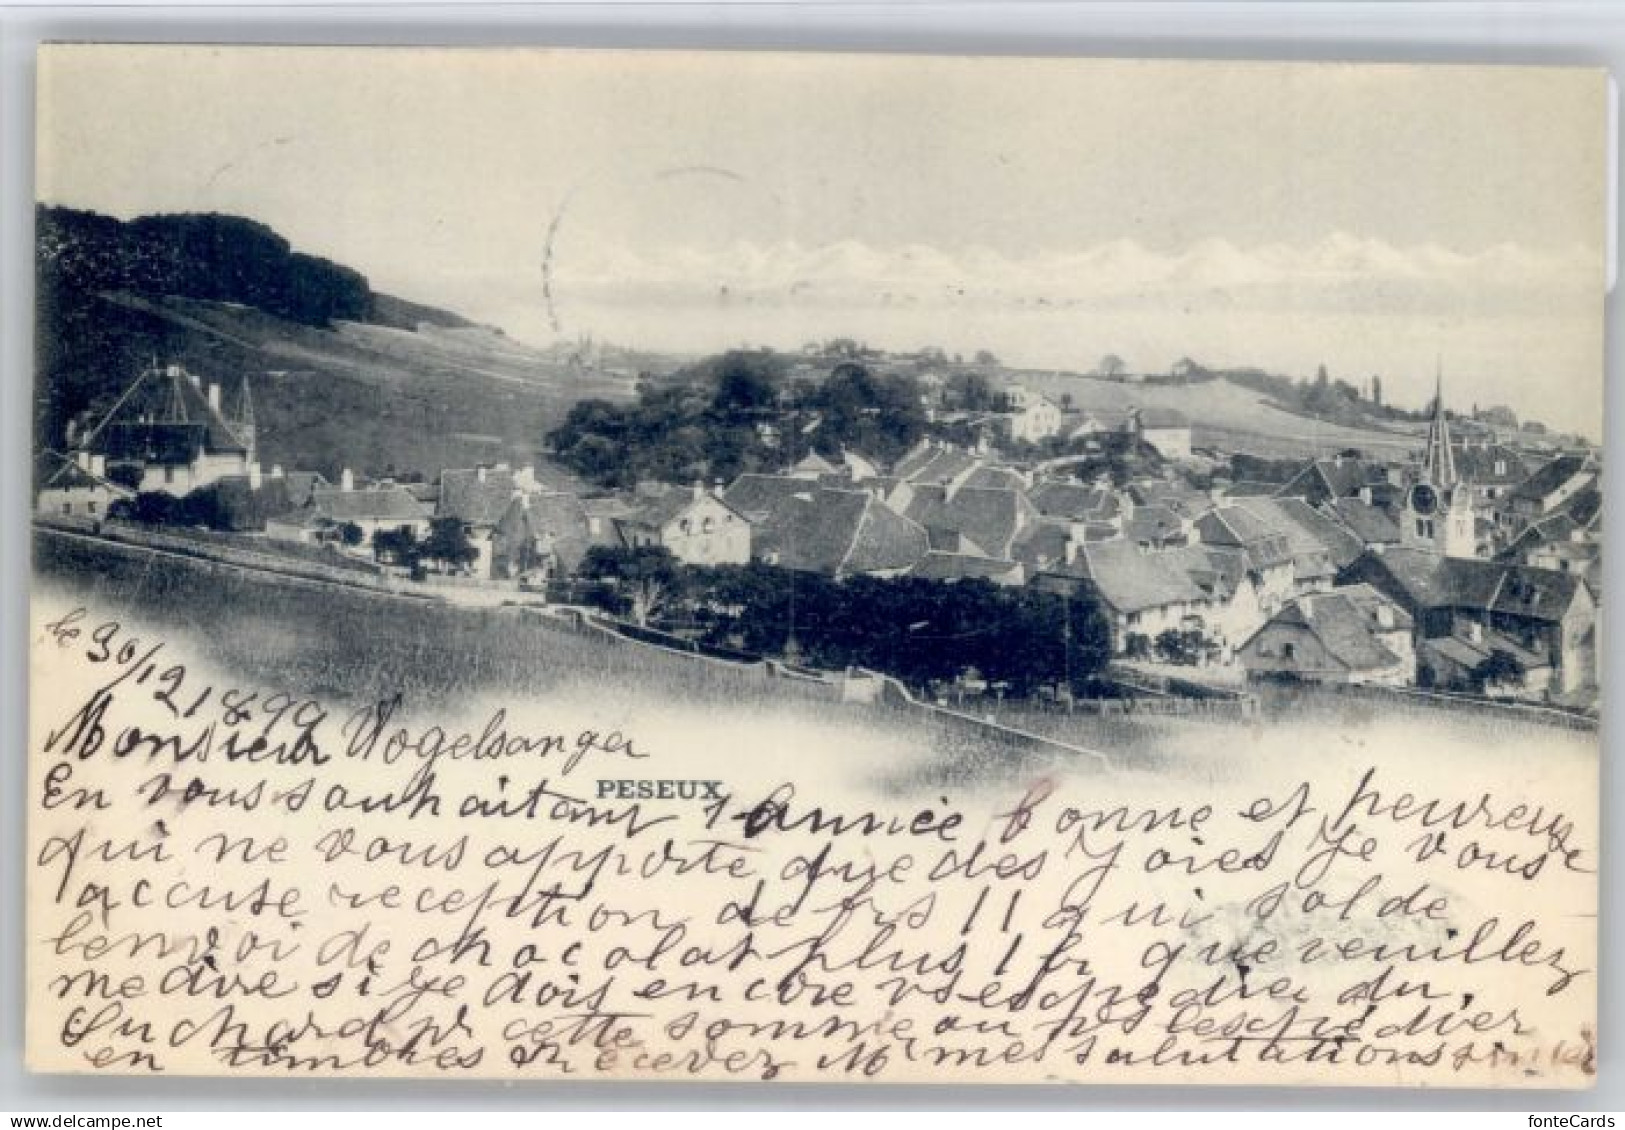 le 30/12 1899
Monsieur Vogelsanger
PESEUX
En vous souhaitant 1 année bonne et heureuse
qui ne vous apporte que des joies je vous
accuse reception de frs 11 qui solde
l'envoi de chocolat plus 1 fr que veuillez
me dire si je dois encore vs expedier du
Suchard pr cette somme ou vs les expédier
en timbres Recevez Mr mes salutations
fonteCards